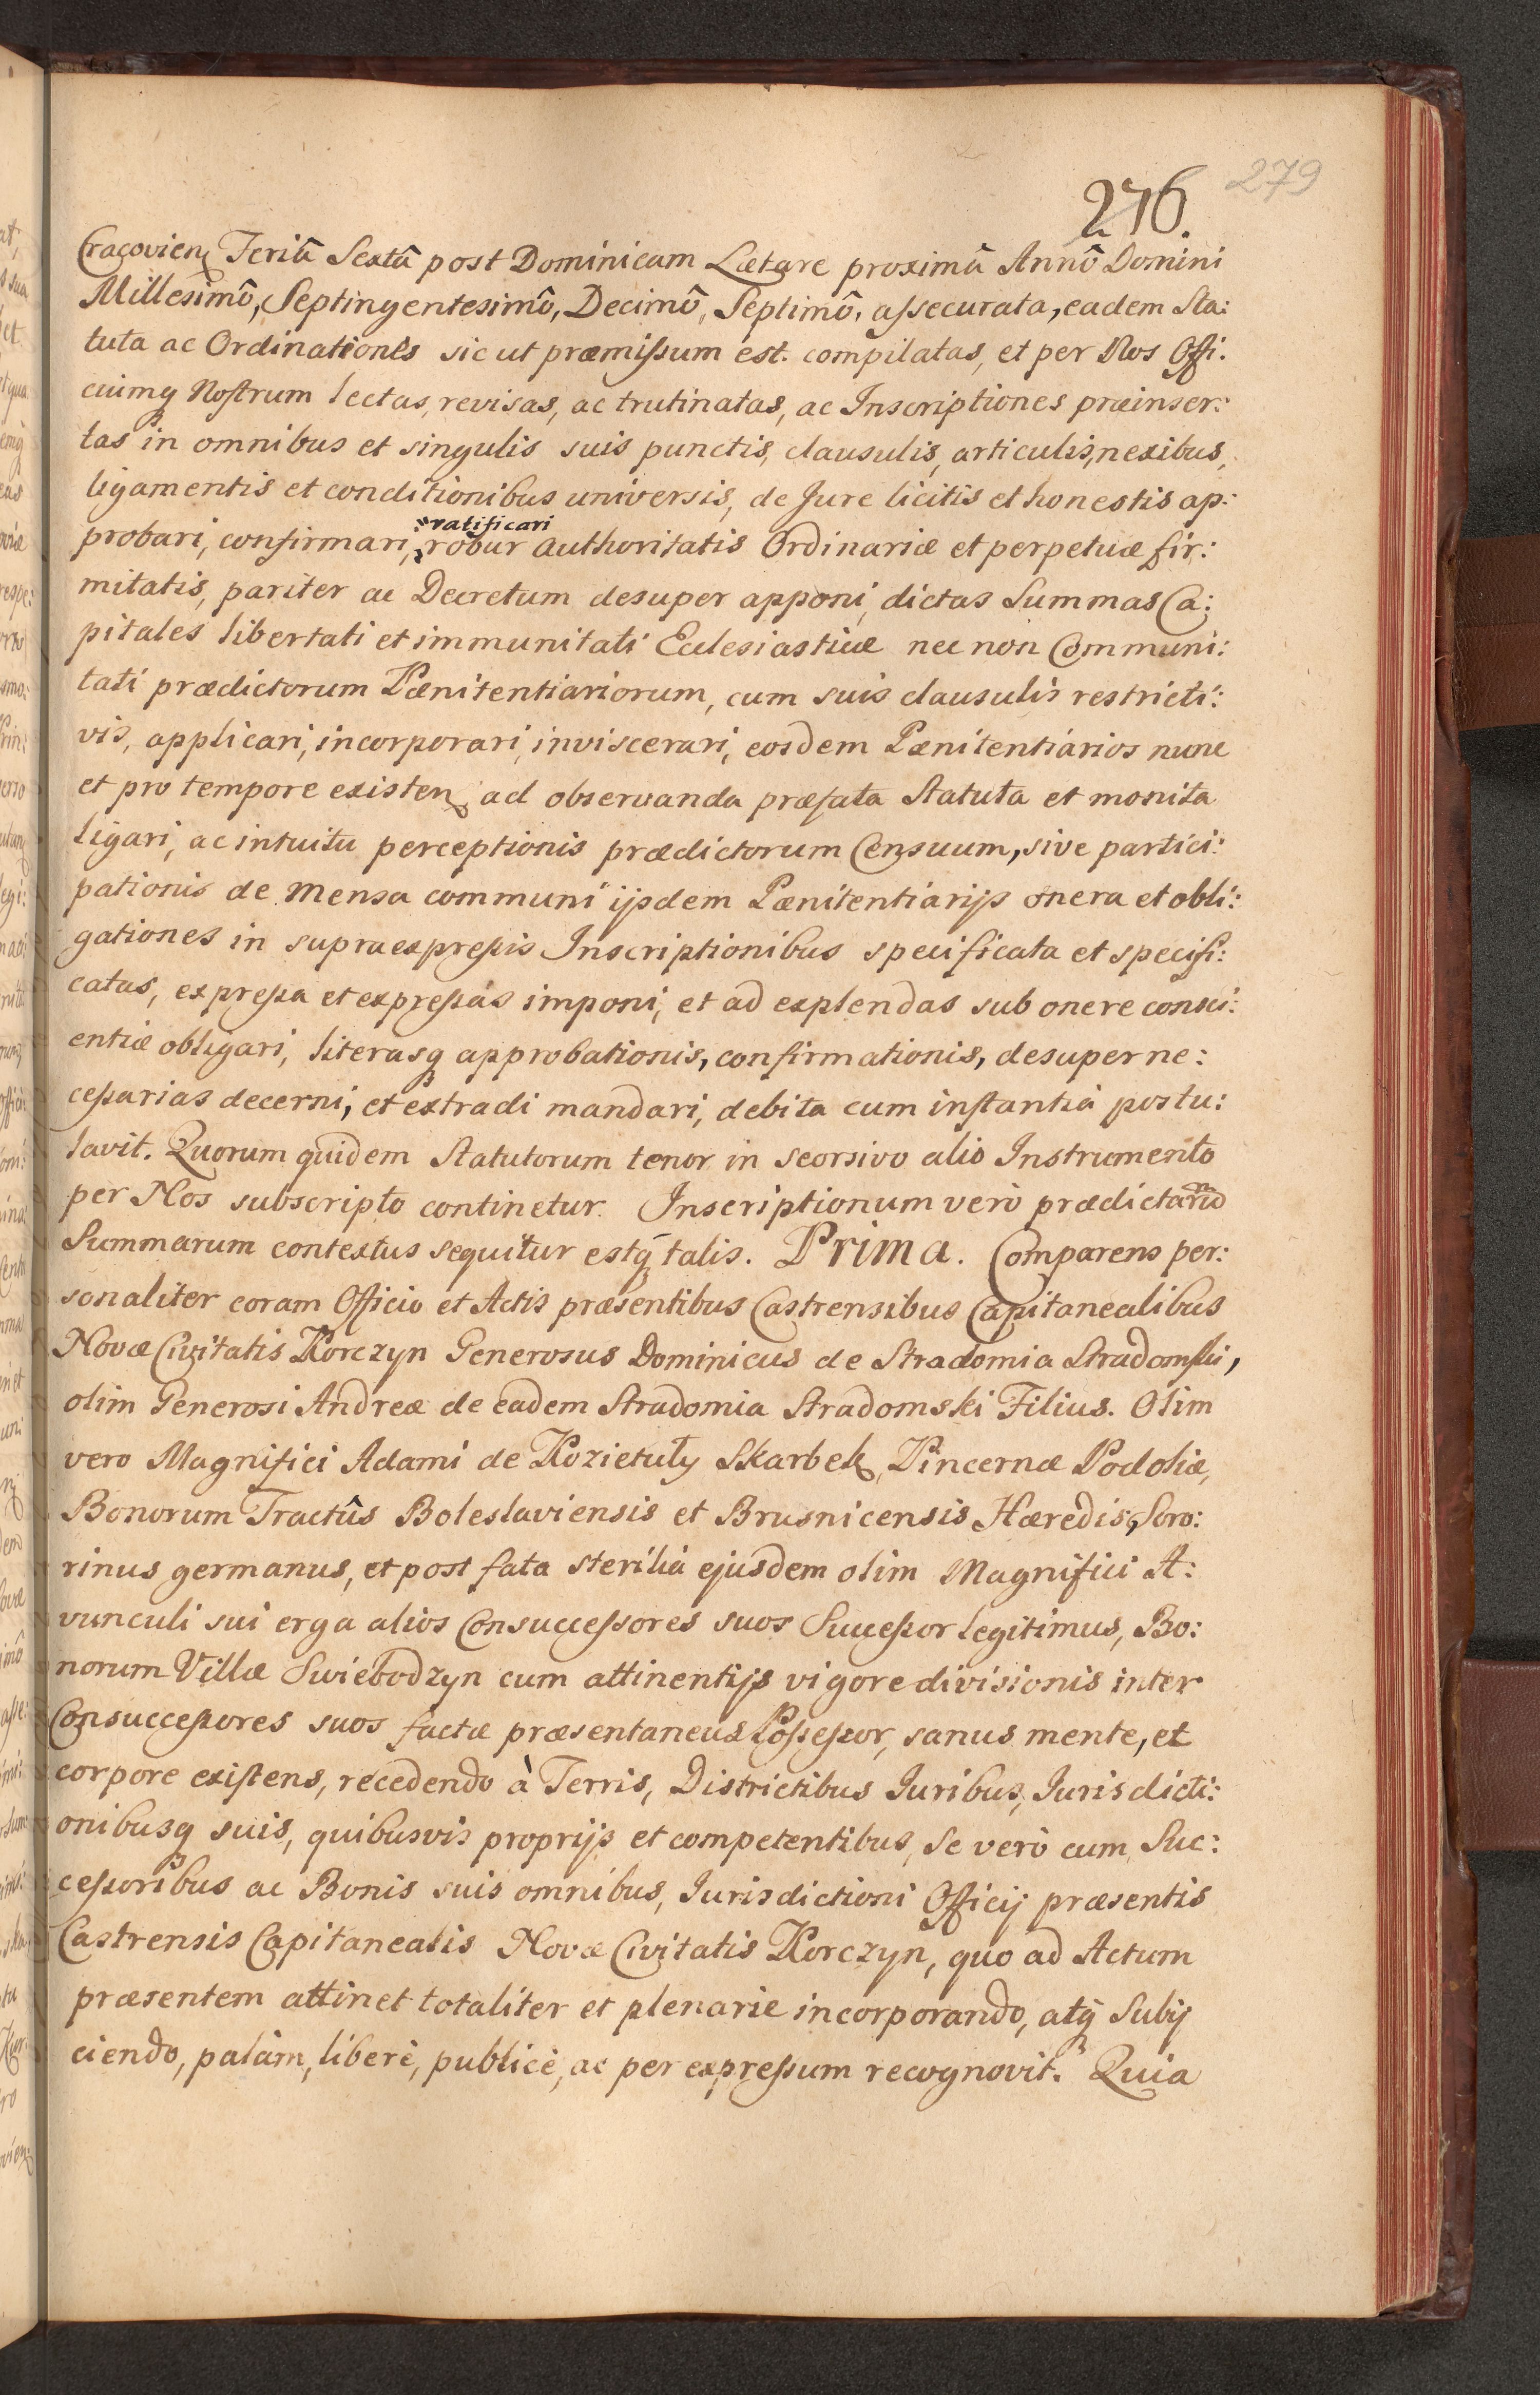 276.
279
Cracovien Feriâ Sextâ post Dominicam Lætare proximâ Annô Domini
Millesimô, Septingentesimô, Decimô, Septimô, assecurata, eadem Sta:
tuta ac Ordinationes sic ut præmissum est. compilatas, et per Nos Offi:
ciumq Nostrum lectas, revisas, ac trutinatas, ac Inscriptiones præinser:
tas in omnibus et singulis suis punctis, clausulis, articulis, nexibus,
ligamentis et conditionibus universis, de Jure licitis et honestis ap:
ratificari
probari, confirmari, robur Authoritatis Ordinariæ et perpetuæ fir:
mitatis, pariter ac Decretum desuper apponi, dictas Summas Ca:
pitales libertati et immunitati Ecclesiasticæ nec non Communi:
tati prædictorum Pænitentiariorum, cum suis clausulis restricti:
vis, applicari, incorporari, inviscerari, eosdem Pænitentiarios nunc
et pro tempore existen ad observanda præfata Statuta et monita
ligari, ac intuitu perceptionis prædictorum Censuum, sive partici:
pationis de Mensa communi ijsdem Pænitentiarijs onera et obli:
gationes in supraexpressis Inscriptionibus specificata et specifi:
catas, expressa et expressas imponi, et ad explendas sub onere consci:
entiæ obligari, literasq approbationis, confirmationis, desuper ne:
cessarias decerni, et extradi mandari, debita cum instantia postu:
lavit. Quorum quidem Statutorum tenor in seorsivo alio Instrumento
per Nos subscripto continetur. Inscriptionum verò prædictarum
Summarum contextus sequitur estq talis. Prima. Comparens per:
sonaliter coram Officio et Actis præsentibus Castrensibus Capitanealibus
Novæ Civitatis Korczyn Generosus Dominicus de Stradomia Stradomski,
olim Generosi Andreæ de eadem Stradomia Stradomski Filius. Olim
vero Magnifici Adami de Kozietuły Skarbek, Pincernæ Podoliæ,
Bonorum Tractûs Boleslaviensis et Brusnicensis Hæredis, Soro:
rinus germanus, et post fata sterilia ejusdem olim Magnifici A:
vunculi sui erga alios Consuccessores suos Successor legitimus, Bo:
norum Villæ Swiebodzyn cum attinentijs vigore divisionis inter
Consuccessores suos factæ præsentaneus Possessor, sanus mente, et
corpore existens, recedendo à Terris, Districtibus Juribus, Jurisdicti:
onibusq suis, quibusvis proprijs et competentibus, Se verò cum Suc:
cessoribus ac Bonis suis omnibus, Jurisdictioni Officij præsentis
Castrensis Capitanealis Novæ Civitatis Korczyn, quo ad Actum
præsentem attinet totaliter et plenarie incorporando, atq Subij
ciendo, palàm, liberè, publicè, ac per expressum recognovit. Quia